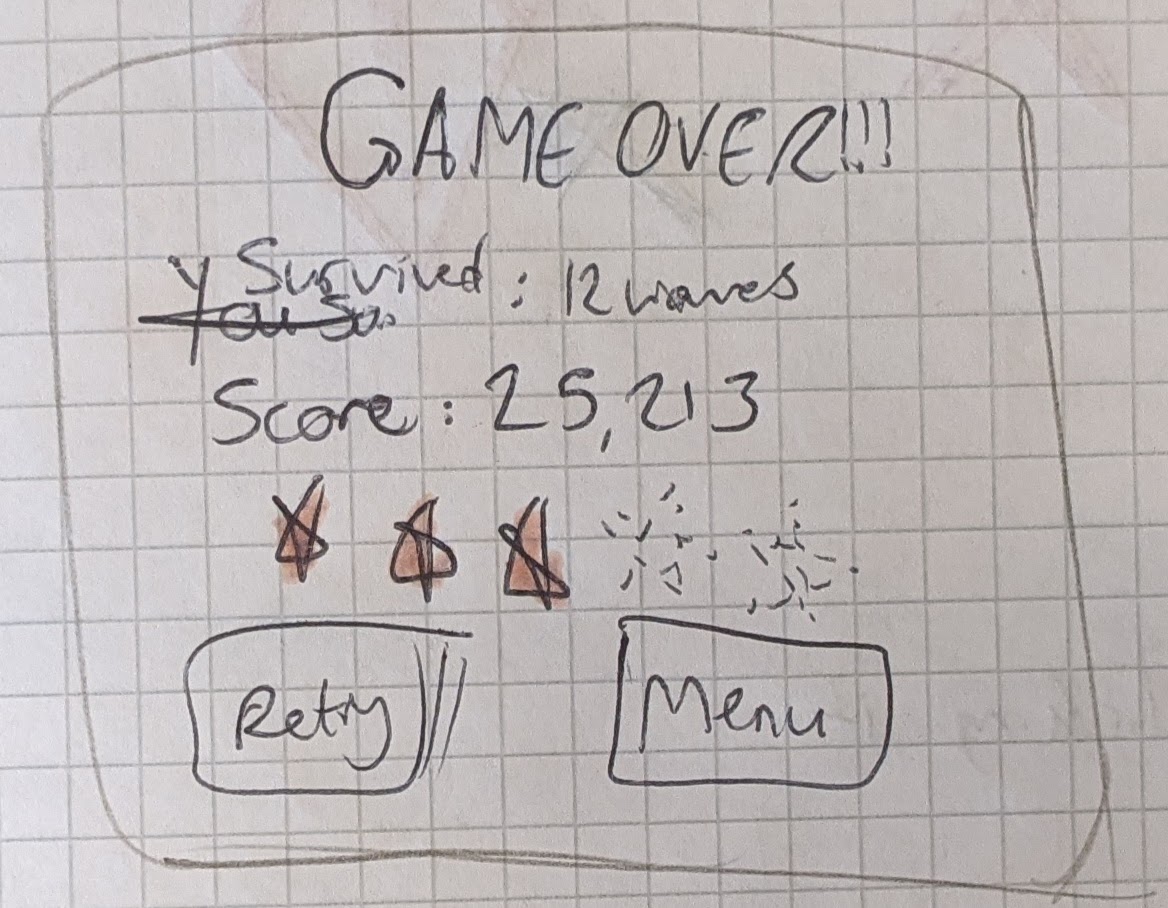 GAME OVER!!!
Survived: 12 waves
Score: 25,213
Retry
Menu